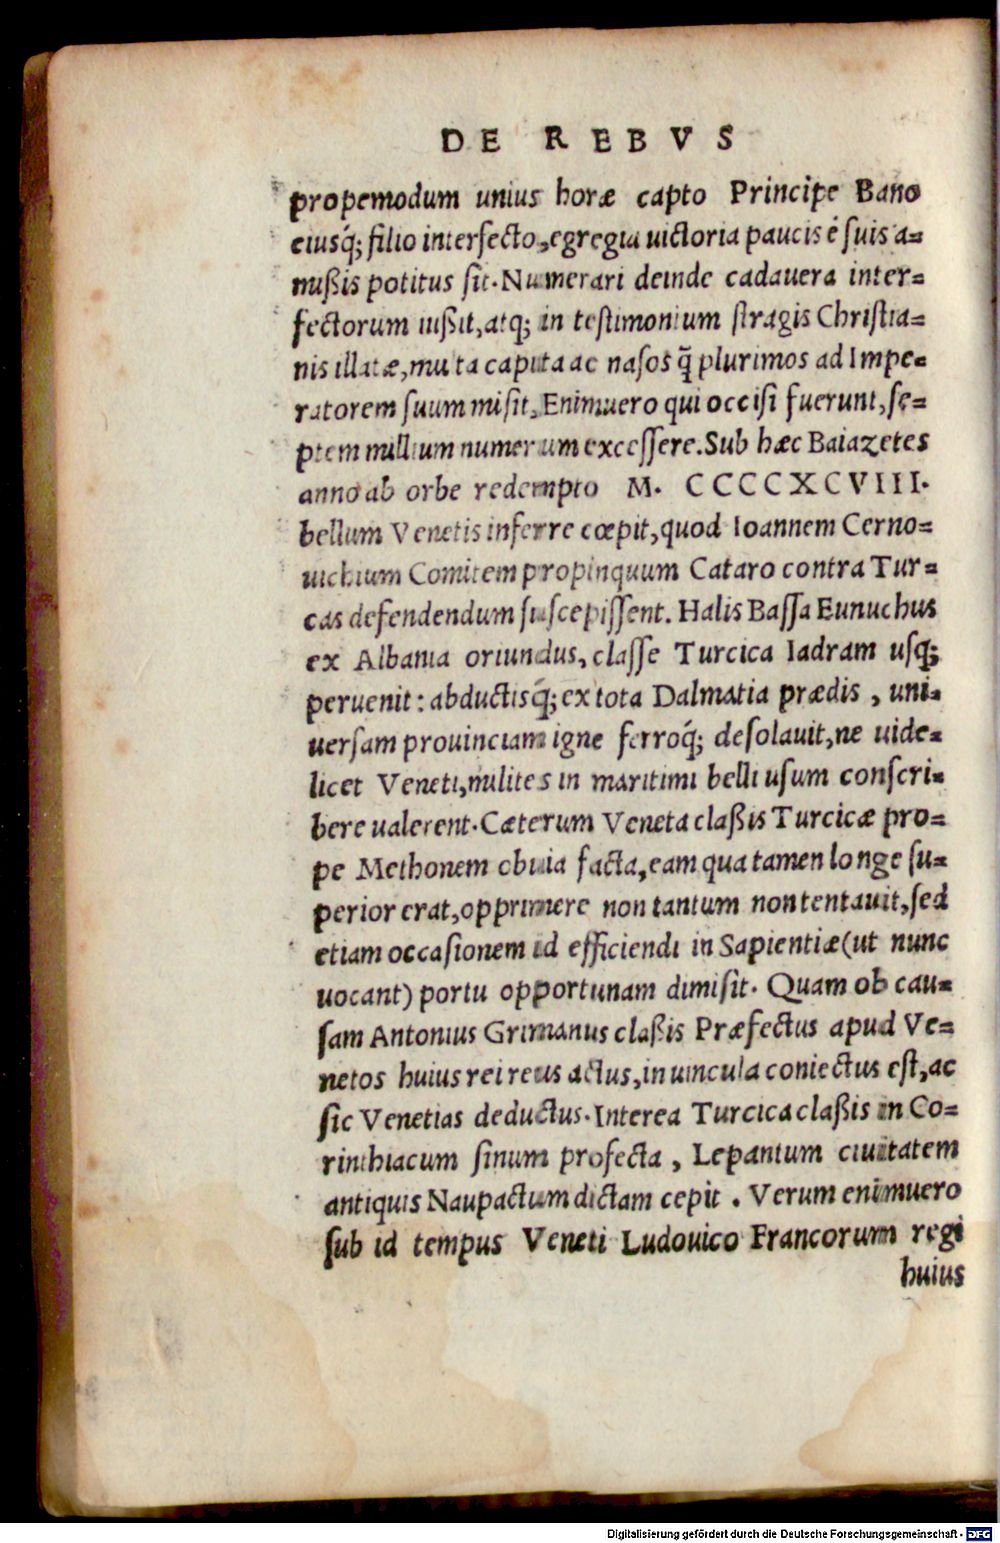 DE REBVS
propemodum unius horæ capto Principe Bano
eiusq́; filio interfecto, egregia uictoria paucis è suis a=
mißis potitus sit. Numerari deinde cadauera inter=
fectorum iußit, atq; in testimonium stragis Christia=
nis illatæ, multa capita ac nasos q̃ plurimos ad Impe=
ratorem suum misit. Enimuero qui occisi fuerunt, se=
ptem millium numerum excessere. Sub hæc Baiazetes
anno ab orbe redempto M. CCCCXCVIII.
bellum Venetis inferre cœpit, quod Ioannem Cerno=
uichium Comitem propinquum Cataro contra Tur=
cas defendendum suscepissent. Halis Bassa Eunuchus
ex Albania oriundus, classe Turcica Iadram usq;
peruenit: abductisq́; ex tota Dalmatia prædis, uni=
uersam prouinciam igne ferroq́; desolauit, ne uide=
licet Veneti, milites in maritimi belli usum conscri=
bere ualerent. Cæterum Veneta claßis Turcicæ pro=
pe Methonem obuia facta, eam qua tamen longe su=
perior erat, opprimere non tantum non tentauit, sed
etiam occasionem id efficiendi in Sapientiæ (ut nunc
uocant) portu opportunam dimisit. Quam ob cau=
sam Antonius Grimanus claßis Præfectus apud Ve=
netos huius rei reus actus, in uincula coniectus est, ac
sic Venetias deductus. Interea Turcica claßis in Co=
rinthiacum sinum profecta, Lepantum ciuitatem
antiquis Naupactum dictam cepit. Verum enimuero
sub id tempus Veneti Ludouico Francorum regi
huius
Digitalisierung gefördert durch die Deutsche Forschungsgemeinschaft - DFG